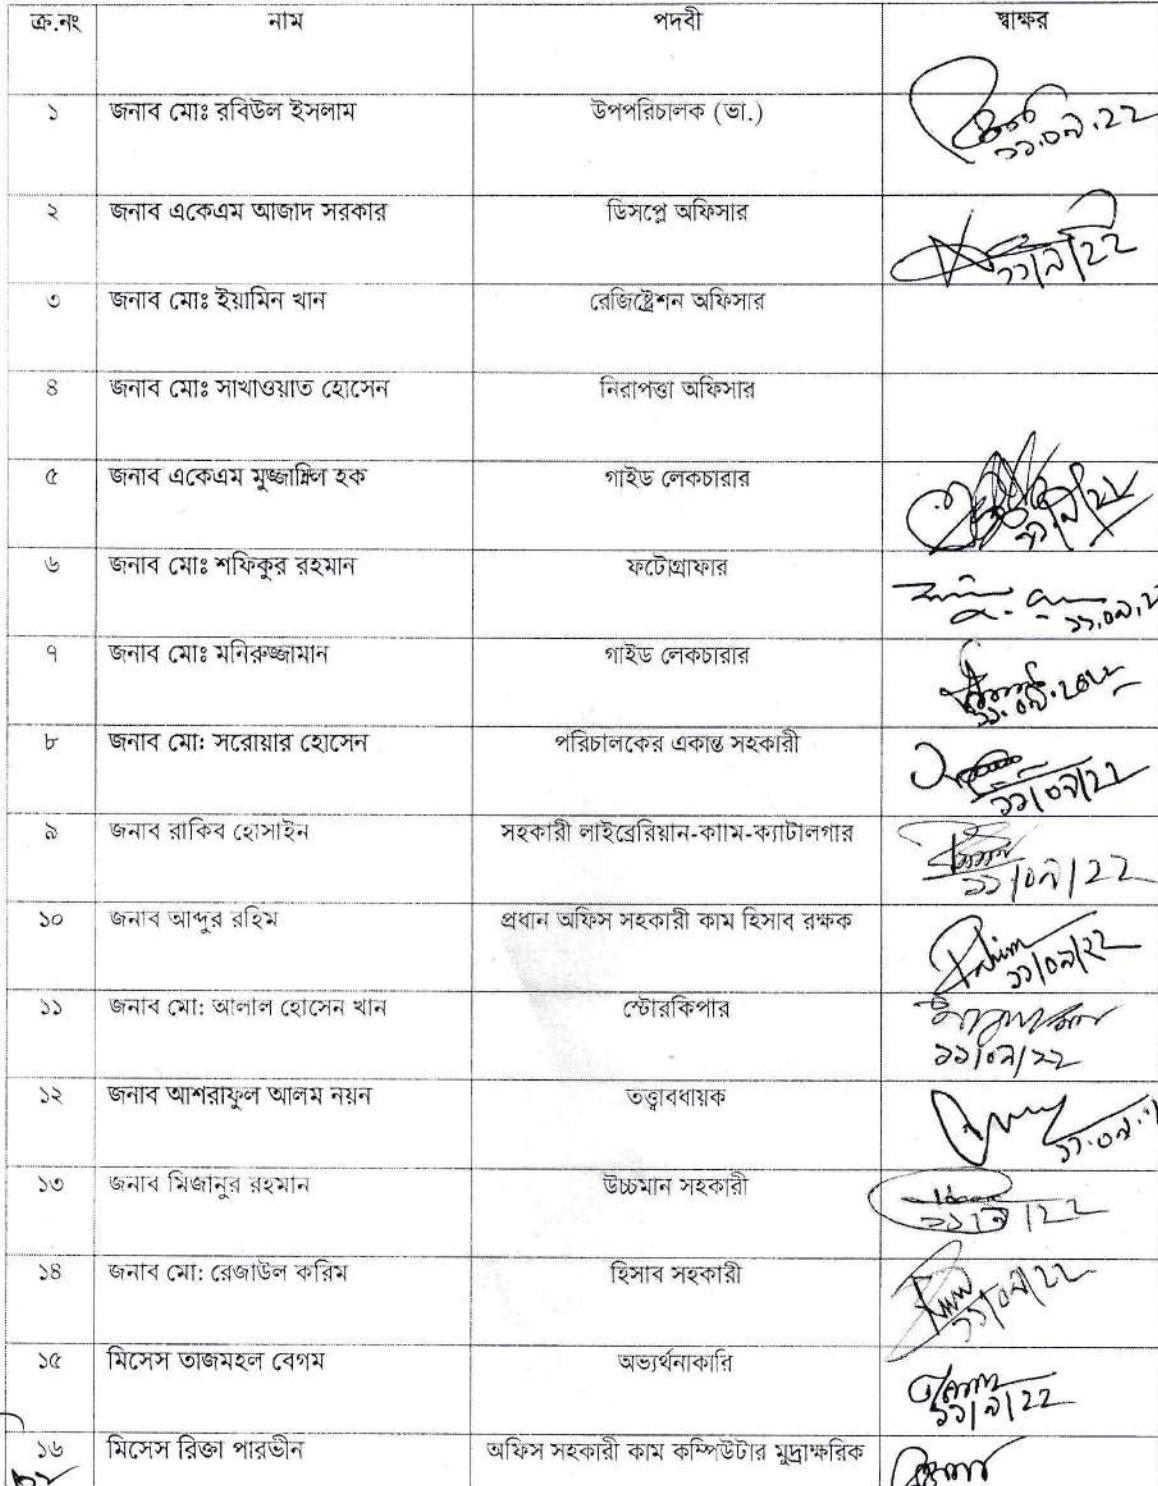 ক্র.নং নাম পদবী স্বাক্ষর
১ জনাব মোঃ রবিউল ইসলাম উপপরিচালক (ভা.) ১১.০৯.২২
২ জনাব একেএম আজাদ সরকার ডিসপ্লে অফিসার ১১/৯/২২
৩ জনাব মোঃ ইয়ামিন খান রেজিষ্ট্রেশন অফিসার
৪ জনাব মোঃ সাখাওয়াত হোসেন নিরাপত্তা অফিসার
৫ জনাব একেএম মুজ্জাম্মিল হক গাইড লেকচারার
৬ জনাব মোঃ শফিকুর রহমান ফটোগ্রাফার
৭ জনাব মোঃ মনিরুজ্জামান গাইড লেকচারার
৮ জনাব মো: সরোয়ার হোসেন পরিচালকের একান্ত সহকারী ১১/০৯/২২
৯ জনাব রাকিব হোসাইন সহকারী লাইব্রেরিয়ান-কাাম-ক্যাটালগার ১১/০৯/২২
১০ জনাব আব্দুর রহিম প্রধান অফিস সহকারী কাম হিসাব রক্ষক Rahim ১১/০৯/২২
১১ জনাব মো: আলাল হোসেন খান স্টোরকিপার ১১/০৯/২২
১২ জনাব আশরাফুল আলম নয়ন তত্ত্বাবধায়ক
১৩ জনাব মিজানুর রহমান উচ্চমান সহকারী ১১/৯/২২
১৪ জনাব মো: রেজাউল করিম হিসাব সহকারী ১১/০৯/২২
১৫ মিসেস তাজমহল বেগম অভ্যর্থনাকারি ১১/৯/২২
১৬ মিসেস রিক্তা পারভীন অফিস সহকারী কাম কম্পিউটার মুদ্রাক্ষরিক